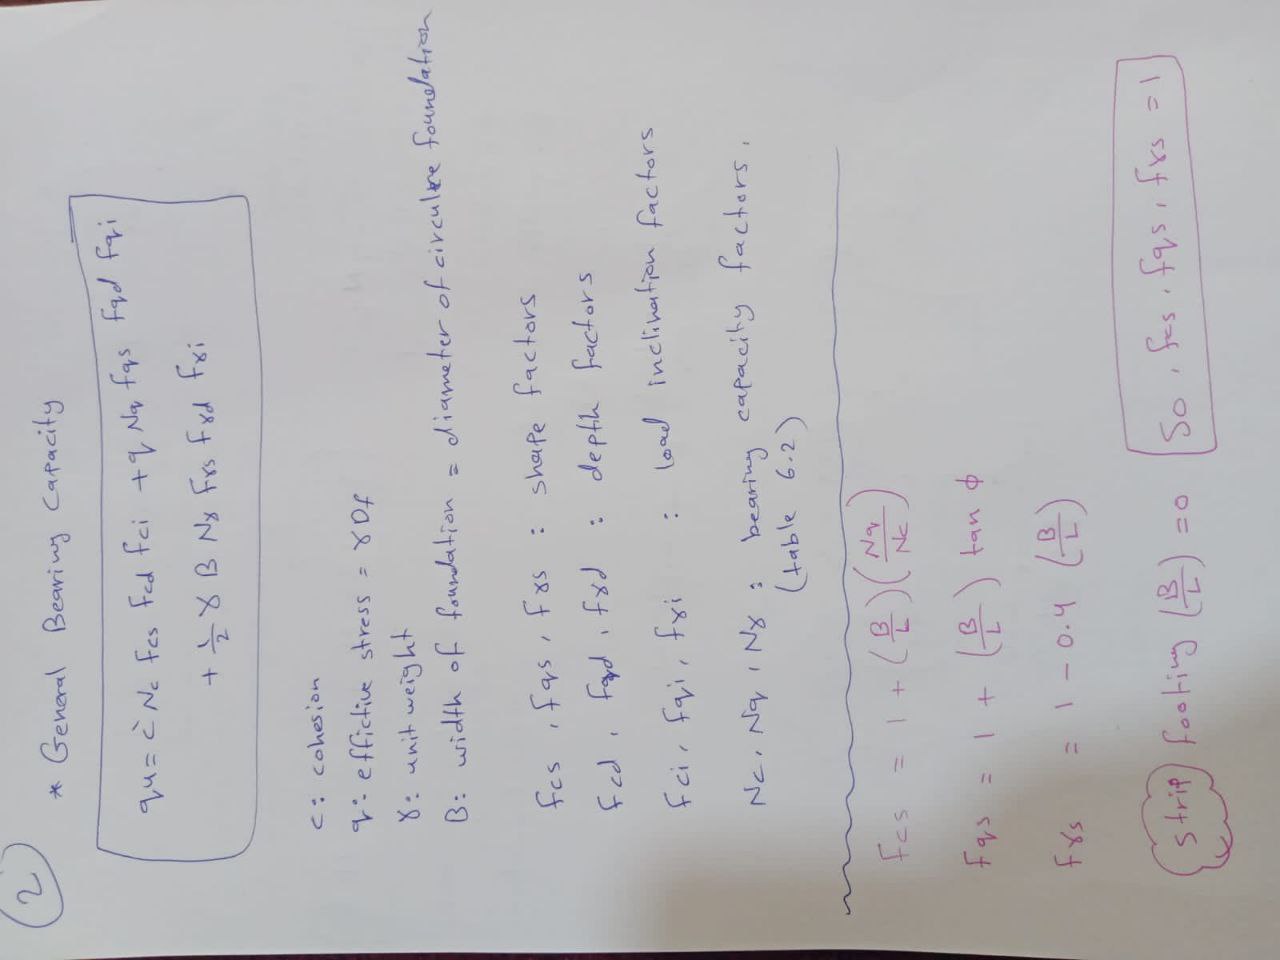 2
* General Bearing Capacity
qu = c' Nc Fcs Fcd fci + q Nq fqs fqd fqi
+ 1/2 γ B Nγ Fγs Fγd fγi
c: cohesion
q: effictive stress = γDf
γ: unit weight
B: width of foundation = diameter of circulre foundation
fcs, fqs, fγs : shape factors
fcd, fqd, fγd : depth factors
fci, fqi, fγi : load inclination factors
Nc, Nq, Nγ : bearing capacity factors.
(table 6.2)
fcs = 1 + (B/L)(Nq/Nc)
fqs = 1 + (B/L) tan ϕ
fγs = 1 - 0.4 (B/L)
strip footing (B/L) = 0 So, fcs, fqs, fγs = 1